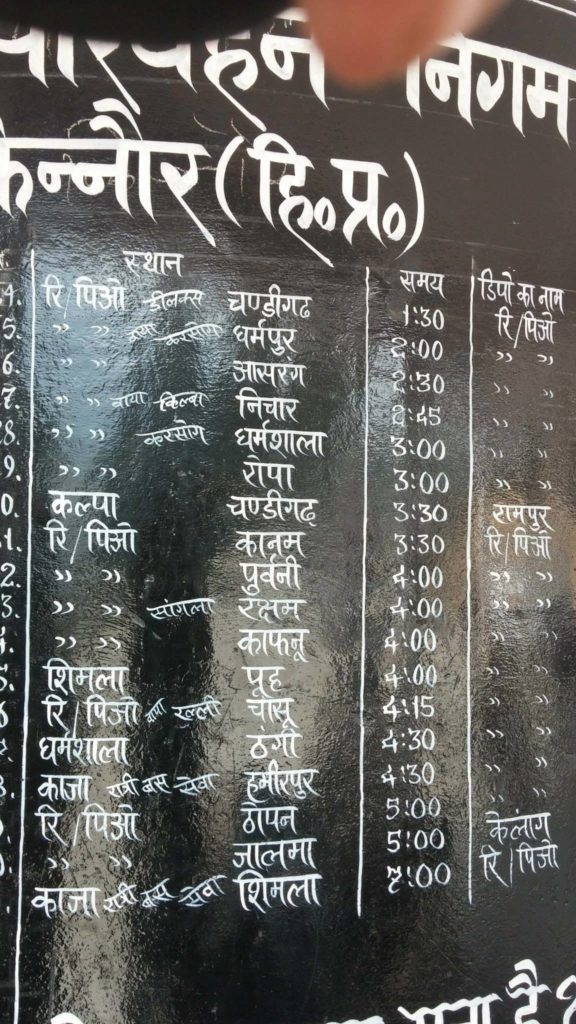 निगम
किन्नौर (हि॰प्र॰)
स्थान समय डिपो का नाम
4. रि/पिओ डीलक्स चण्डीगढ 1:30 रि/पिओ
5. ,, ,, वाया करसोग धर्मपुर 2:00 ,, ,,
6. ,, ,, आसरग 2:30 ,, ,,
7. ,, ,, वाया किल्बा निचार 2:45 ,, ,,
8. ,, ,, करसोग धर्मशाला 3:00 ,, ,,
9. ,, ,, रोपा 3:00 ,, ,,
0. कल्पा चण्डीगढ़ 3:30 रामपुर
1. रि/पिओ कानम 3:30 रि/पिओ
2. ,, ,, पुर्वनी 4:00 ,, ,,
3. ,, ,, सांगला रक्षम 4:00 ,, ,,
,, ,, काफनू 4:00 ,, ,,
5. शिमला पूह 4:00 ,, ,,
रि/पिओ वाया रल्ली चांसू 4:15 ,, ,,
धर्मशाला ठंगी 4:30 ,, ,,
काजा रात्री बस सेवा हमीरपुर 4:30 ,, ,,
रि/पिओ ठोपन 5:00 ,, ,,
,, ,, जालमा 5:00 केलांग
काजा रात्री बस सेवा शिमला 7:00 रि/पिओ